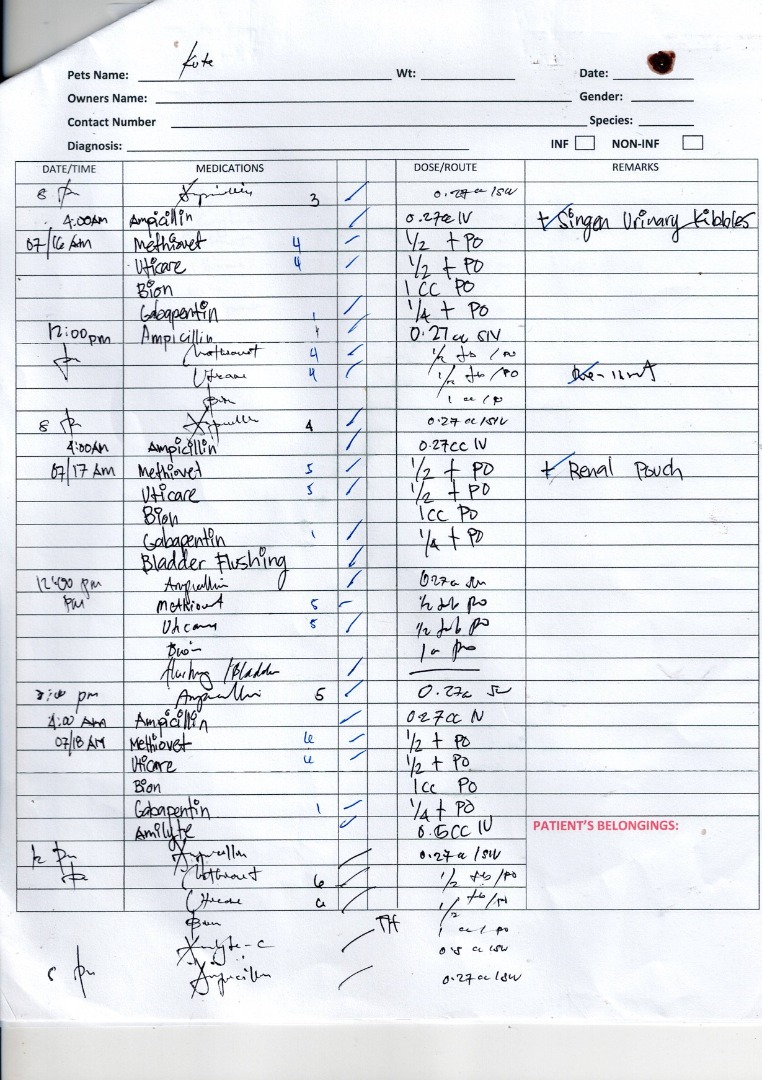 Pets Name: Kute Wt: Date:
Owners Name: Gender:
Contact Number Species:
Diagnosis: INF NON-INF
DATE/TIME MEDICATIONS DOSE/ROUTE REMARKS
8 pm 3 0.27cc /SIV
4:00AM Ampicillin 0.27cc IV + Singen Urinary Kibbles
07/16 AM Methiovet 4 1/2 t PO
Uticare 4 1/2 t PO
Bion 1 CC PO
Gabapentin 1 1/4 t PO
12:00pm Ampicillin 0.27 cc SIV
4 1/2 tb /PO
4 1/2 tb /PO
1 cc /PO
8 pm 4 0.27 cc /SIV
4:00AM Ampicillin 0.27CC IV
07/17 AM Methiovet 5 1/2 t PO + Renal Pouch
Uticare 5 1/2 t PO
Bion 1CC PO
Gabapentin 1 1/4 t PO
Bladder Flushing
12:00 pm Ampicillin
PM Methiovet 5 1/2 tab po
Uticare 5 1/2 tab po
Bion
flushing /Bladder
Ampicillin 5 0.27cc
4:00 AM Ampicillin 0.27CC IV
07/18 AM Methiovet 6 1/2 t PO
Uticare 6 1/2 t PO
Bion 1CC PO
Gabapentin 1 1/4 t PO
Amilyte 0.5CC IV PATIENT'S BELONGINGS:
12 pm 0.27 cc /SIV
6 1/2 tb /PO
6 1/2 tb /PO
1 cc / PO
TH
0.5 cc /SIV
8 pm Ampicillin 0.27 cc /SIV